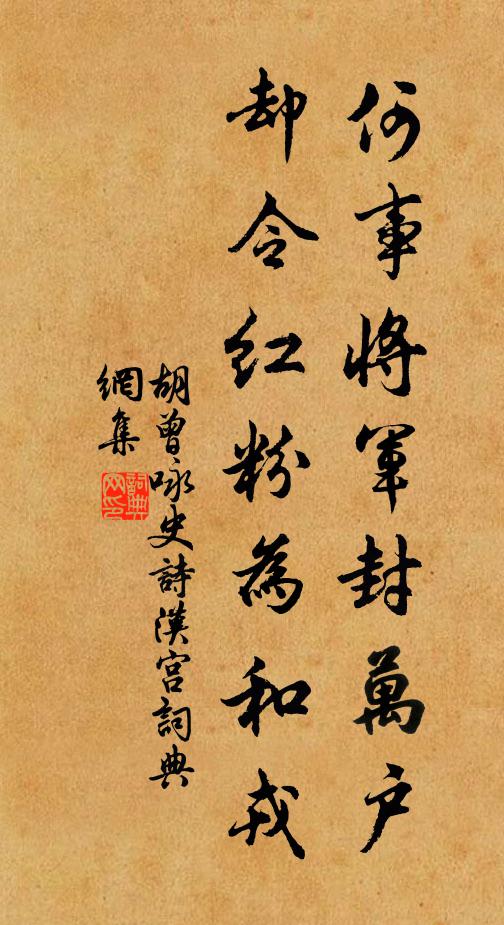 何事將軍封萬戶
却令紅粉為和戎
胡曾咏史詩漢宮詞典
網集
詞典
网印